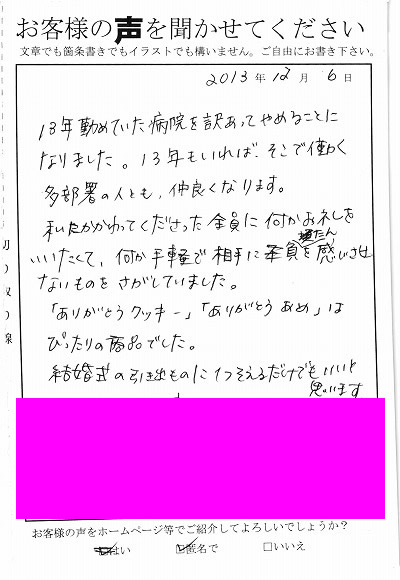 お客様の声を聞かせてください
文章でも箇条書きでもイラストでも構いません。ご自由にお書き下さい。
2013年 12月 6日
13年勤めていた病院を訳あってやめることに
なりました。13年もいれば、そこで働く
多部署の人とも、仲良くなります。
私にかかわってくださった全員に何かお礼を
いいたくて、何か手軽で相手に負たんを感じさせ
ないものをさがしていました。
「ありがとうクッキー」「ありがとうあめ」は
ぴったりの商品でした。
結婚式の引き出ものに1つそえるだけでもいいと
思います
切り取り線
お客様の声をホームページ等でご紹介してよろしいでしょうか?
はい 匿名で □いいえ